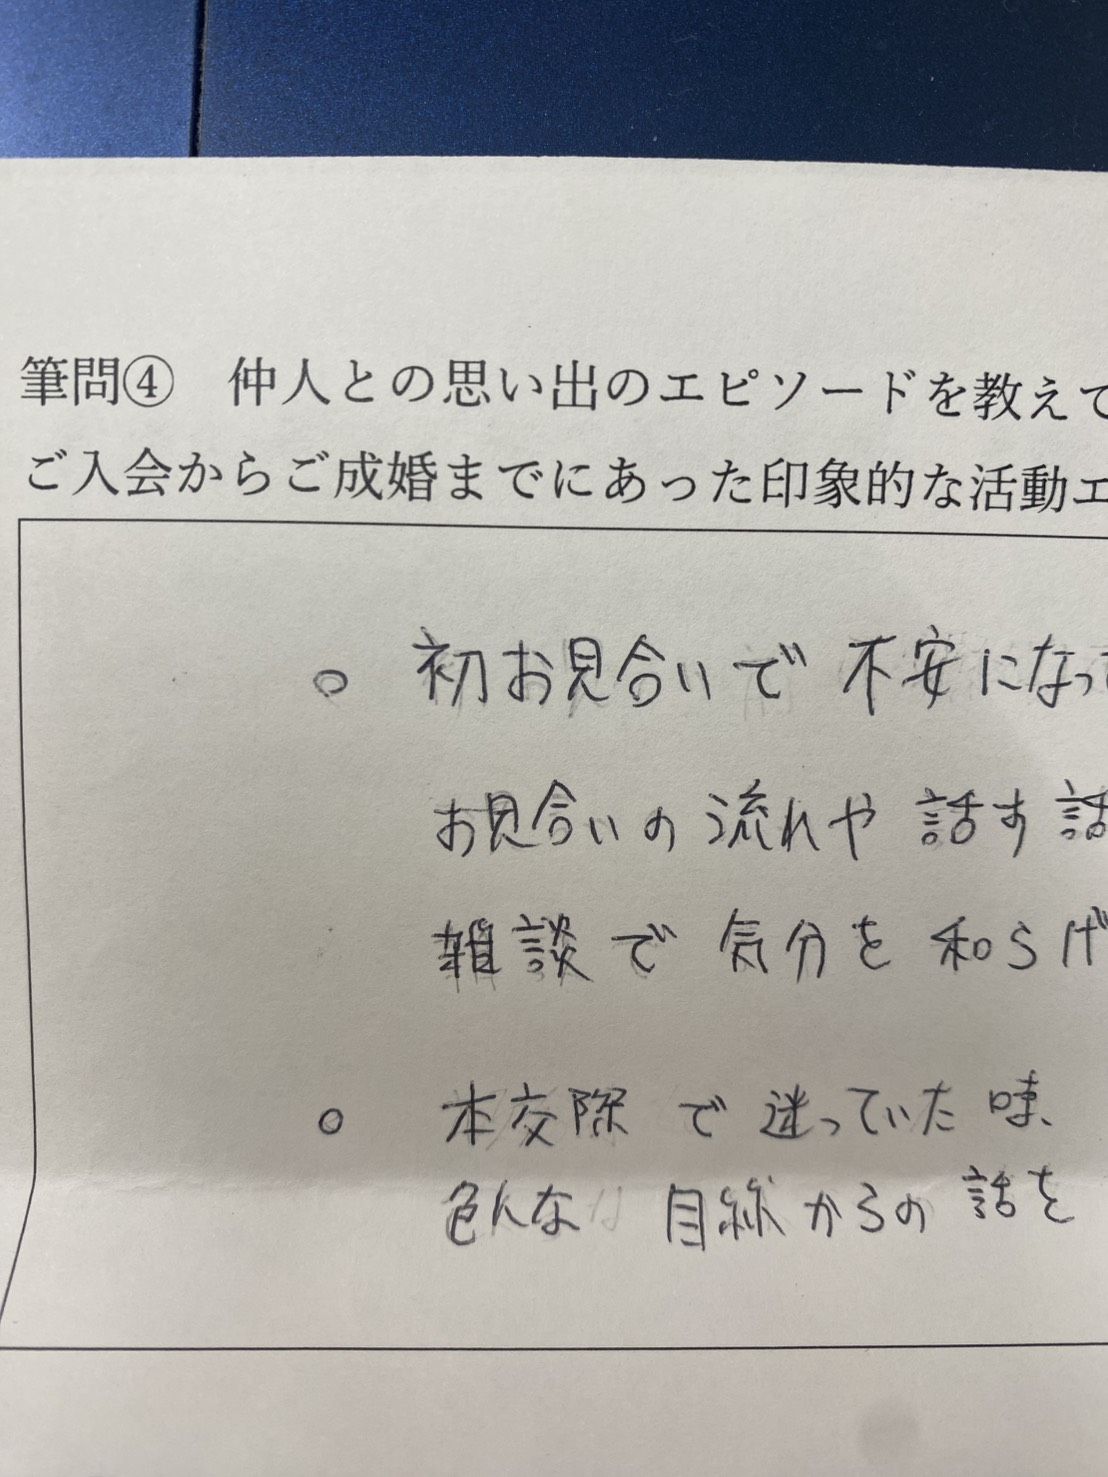 筆問④ 仲人との思い出のエピソードを教えて
ご入会からご成婚までにあった印象的な活動エ
○ 初お見合いで 不安になって
お見合いの流れや 話す 話
雑談で 気分を 和らげ
○ 本交際 で 迷っていた 時、
色んな 目線からの 話を